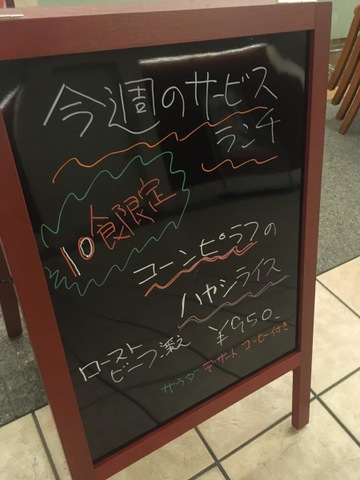 今週のサービス
ランチ
10食限定
コーンピラフの
ハヤシライス
ロースト
ビーフ添え
¥950.
サラダ デザート コーヒー付き